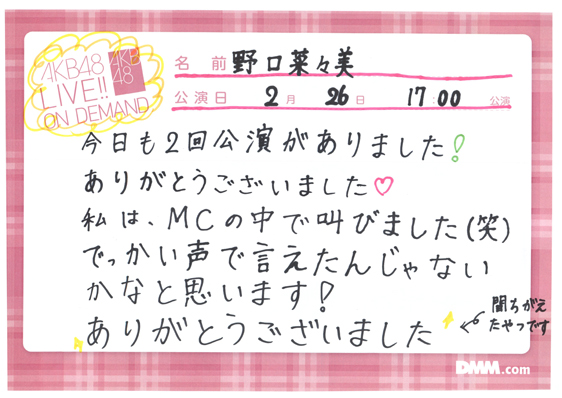 AKB48
LIVE!!
ON DEMAND
AKB
48
名前 野口菜々美
公演日 2月 26日 17:00 公演
今日も2回公演がありました!
ありがとうございました♡
私は、MCの中で叫びました(笑)
でっかい声で言えたんじゃない
かなと思います!
ありがとうございました
間ちがえ
たやつです
DMM.com